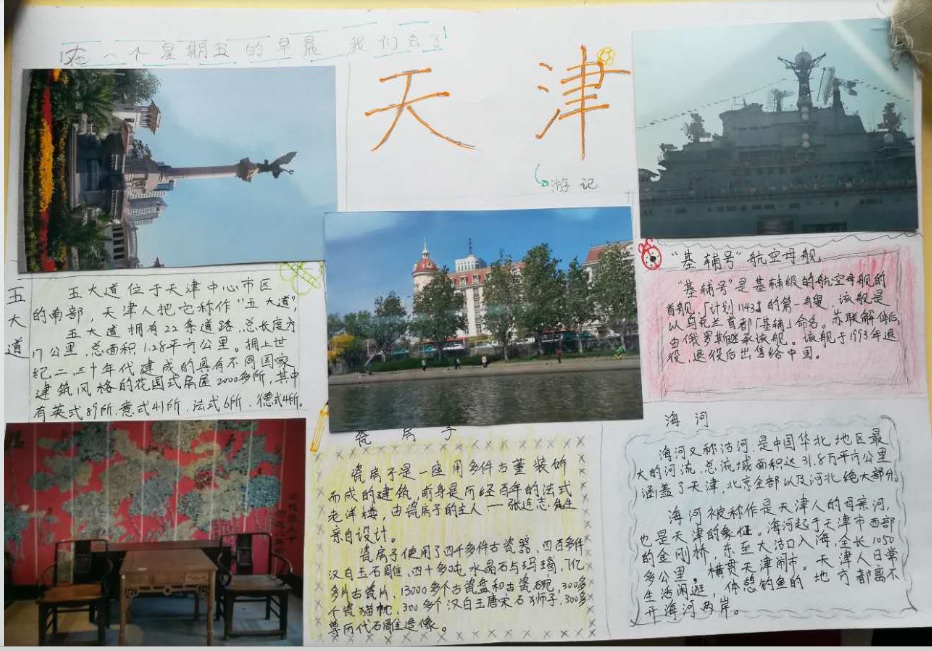 在一个星期五的早晨 我们去了
天津
游记
五大道
五大道位于天津中心市区
的南部，天津人把它称作"五大道"，
五大道拥有22条道路，总长度为
17公里，总面积1.28平方公里。拥上世
纪二、三十年代建成的具有不同国家
建筑风格的花园式房屋2000多所，其中
有英式89所、意式41所、法式6所、德式4所.
"基辅号"航空母舰
"基辅号"是基辅级的航空母舰的
首舰，「计划1143」的第一艘，该舰是
以乌克兰首都「基辅」命名。苏联解体后，
由俄罗斯继承该舰。该舰于1993年退
役，退役后出售给中国。
瓷房子
瓷房子是一座用多件古董装饰
而成的建筑，前身是历经百年的法式
老洋楼，由瓷房子的主人——张连志先生
亲自设计。
瓷房子使用了四千多件古瓷器、四百多件
汉白玉石雕、四十多吨水晶石与玛瑙、7亿
多片古瓷片、13000多个古瓷盘和古瓷碗、300多
个瓷猫枕、300多个汉白玉唐宋石狮子、300多
尊历代石雕造像。
海河
海河又称沽河，是中国华北地区最
大的河流，总流域面积达31.8万平方公里
涵盖了天津，北京全部以及河北绝大部分。
海河被称作是天津人的母亲河，
也是天津的象征。海河起于天津市西部
的金刚桥，东至大沽口入海，全长1050
多公里。横贯天津闹市。天津人日常
生活闲逛、休憩钓鱼的地方都离不
开海河两岸。